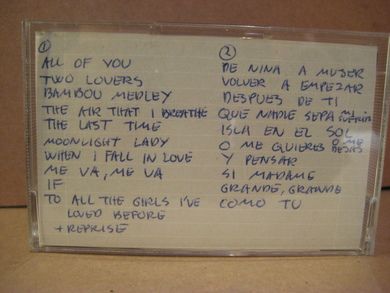 1
ALL OF YOU
TWO LOVERS
BAMBOU MEDLEY
THE AIR THAT I BREATHE
THE LAST TIME
MOONLIGHT LADY
WHEN I FALL IN LOVE
ME VA, ME VA
IF
TO ALL THE GIRLS I'VE
LOVED BEFORE
+ REPRISE
2
DE NINA A MUJER
VOLVER A EMPEZAR
DESPUES DE TI
QUE NADIE SEPA MI
ISLA EN EL SOL
O ME QUIERES O ME DEJAS
Y PENSAR
SI MADAME
GRANDE, GRANDE
COMO TU